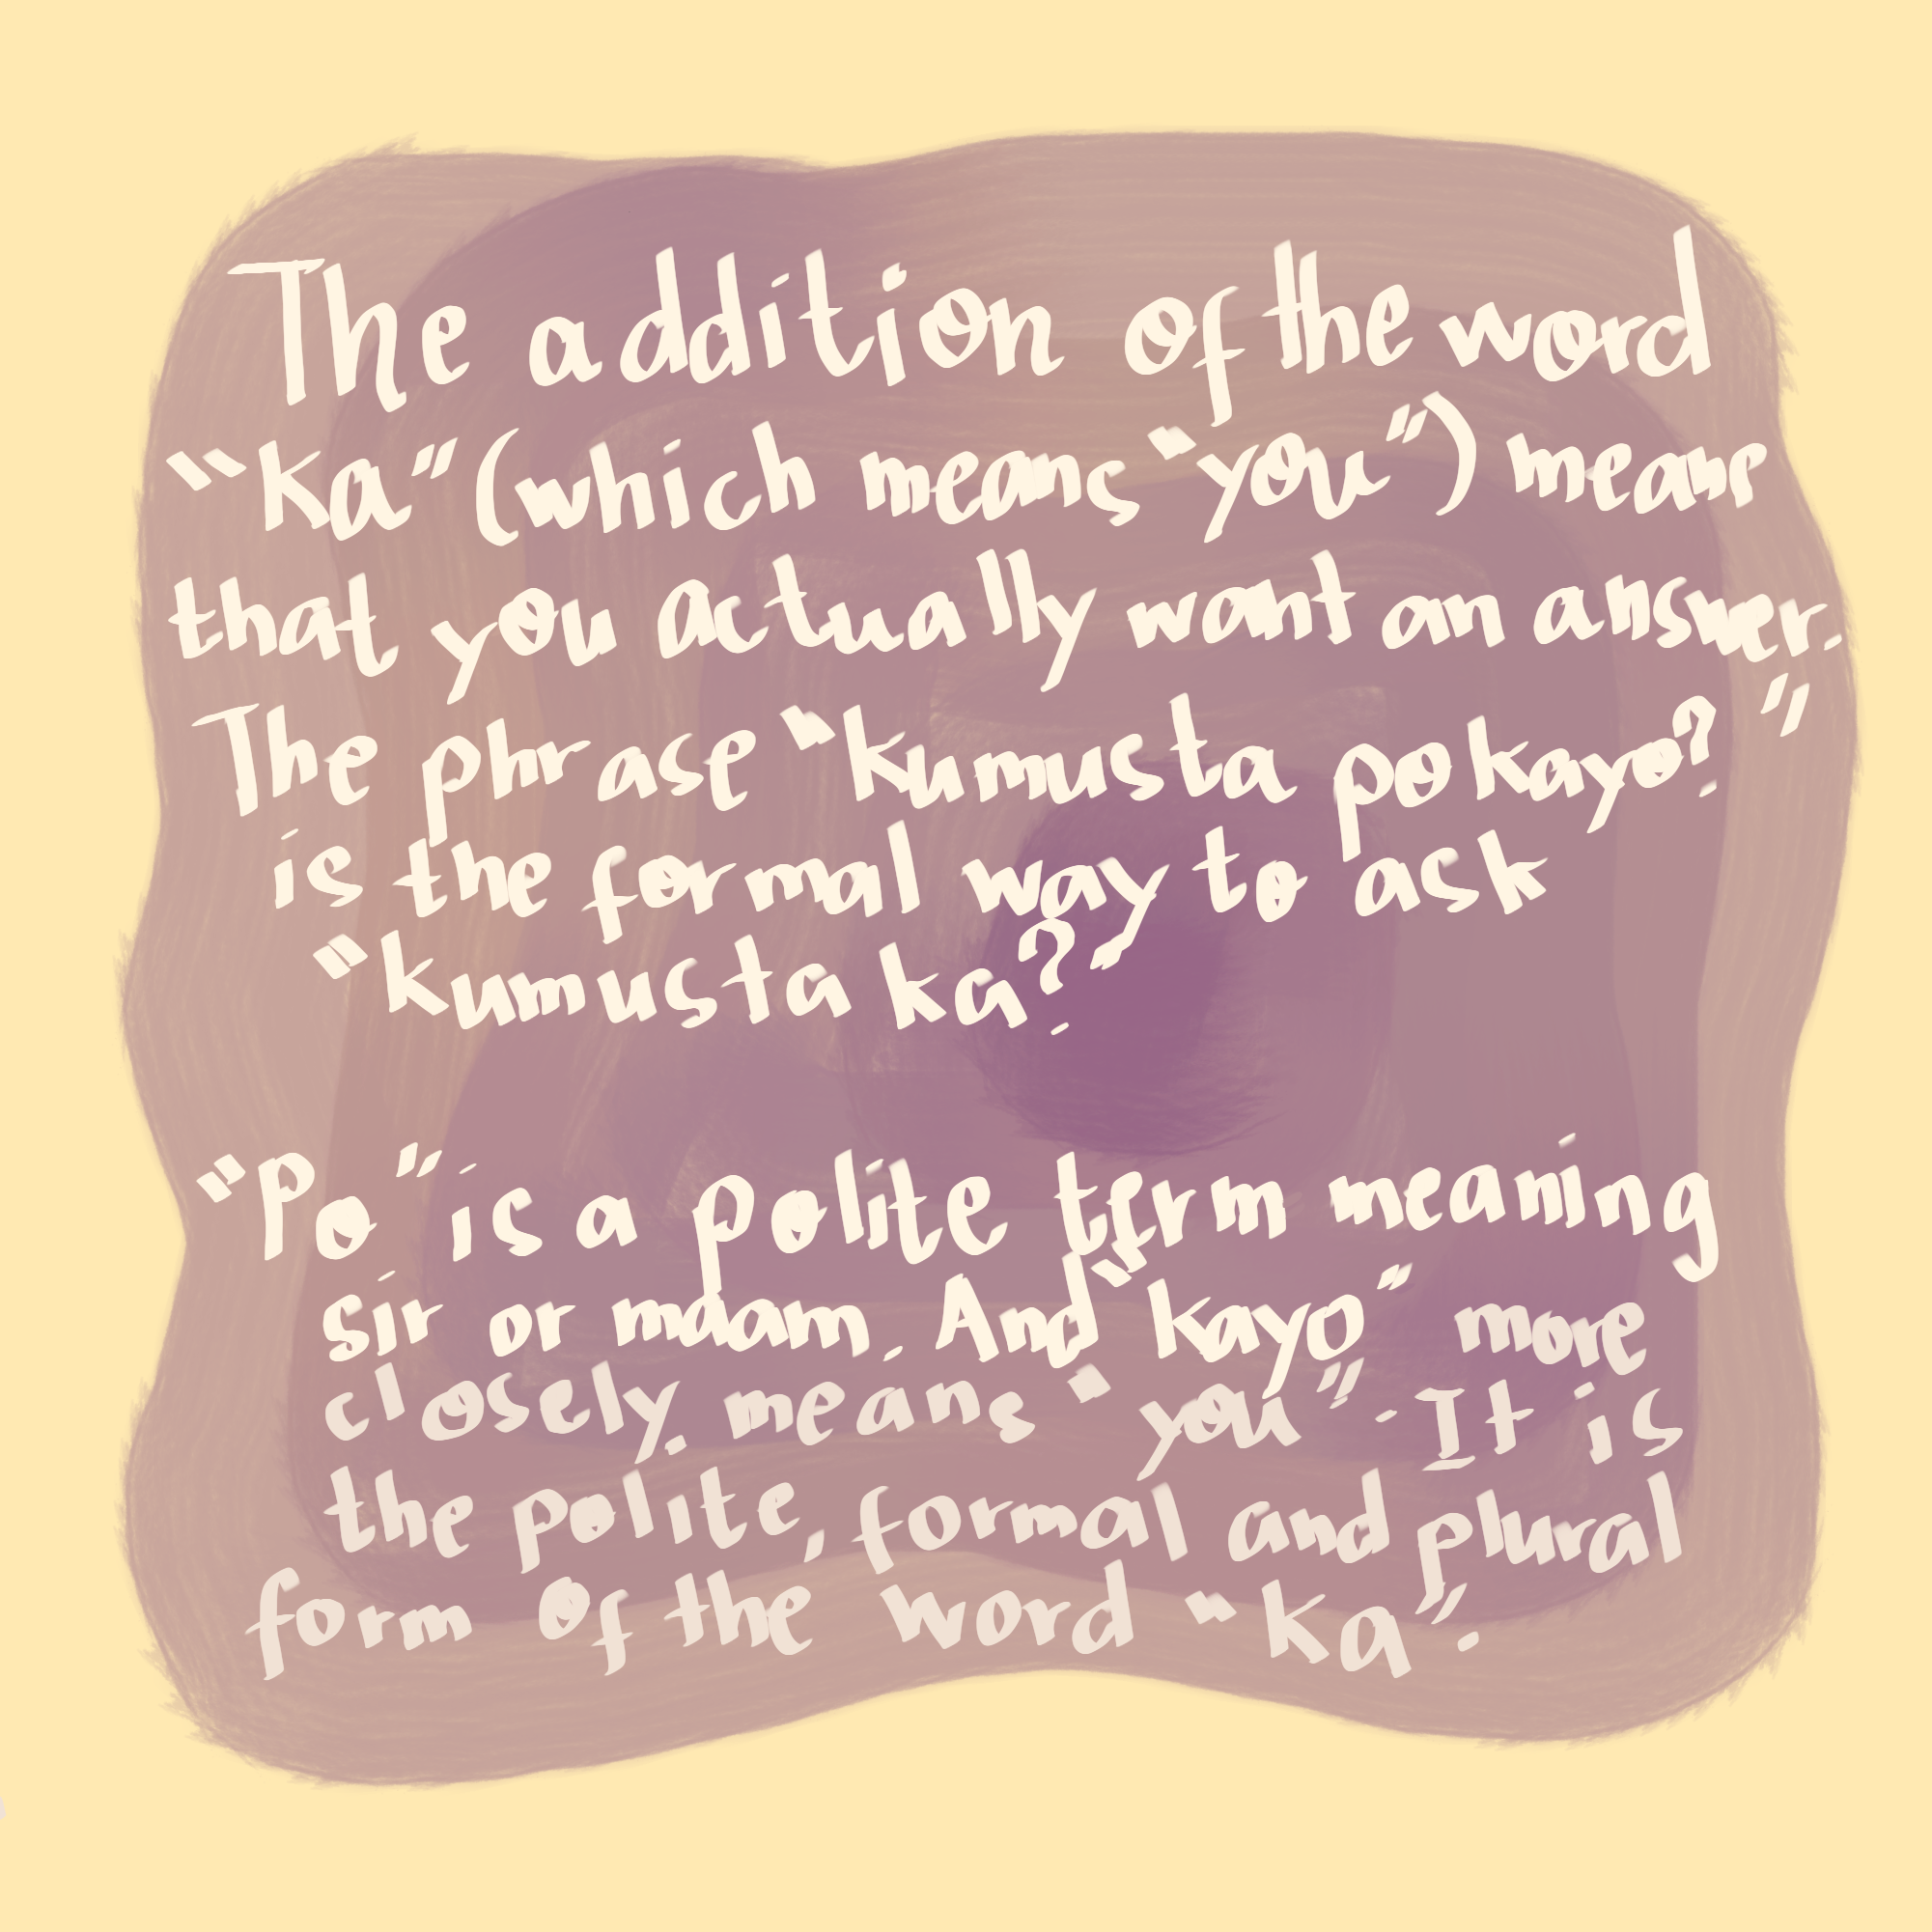 The addition of the word
"Ka" (which means "you") means
that you actually want an answer.
The phrase "kumusta po kayo?"
is the formal way to ask
"kumusta ka?"
"Po" is a polite term meaning
sir or maam. And "kayo" more
closely means "you". It is
the polite, formal and plural
form of the word "ka".